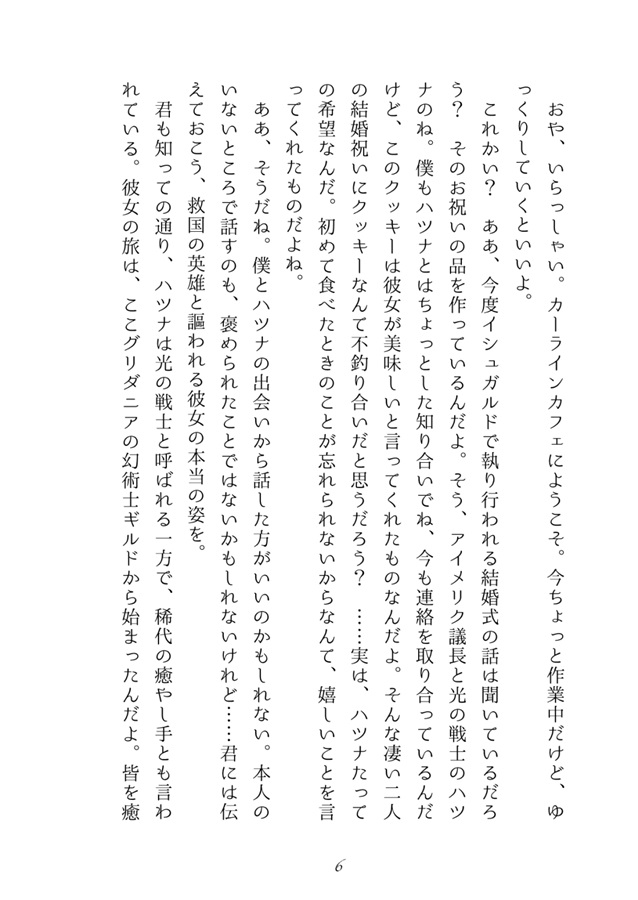 おや、いらっしゃい。カーラインカフェにようこそ。今ちょっと作業中だけど、ゆ
っくりしていくといいよ。
これかい？　ああ、今度イシュガルドで執り行われる結婚式の話は聞いているだろ
う？　そのお祝いの品を作っているんだよ。そう、アイメリク議長と光の戦士のハツ
ナのね。僕もハツナとはちょっとした知り合いでね、今も連絡を取り合っているんだ
けど、このクッキーは彼女が美味しいと言ってくれたものなんだよ。そんな凄い二人
の結婚祝いにクッキーなんて不釣り合いだと思うだろう？　……実は、ハツナたって
の希望なんだ。初めて食べたときのことが忘れられないからなんて、嬉しいことを言
ってくれたものだよね。
ああ、そうだね。僕とハツナの出会いから話した方がいいのかもしれない。本人の
いないところで話すのも、褒められたことではないかもしれないけれど……君には伝
えておこう、救国の英雄と謳われる彼女の本当の姿を。
君も知っての通り、ハツナは光の戦士と呼ばれる一方で、稀代の癒やし手とも言わ
れている。彼女の旅は、ここグリダニアの幻術士ギルドから始まったんだよ。皆を癒
6